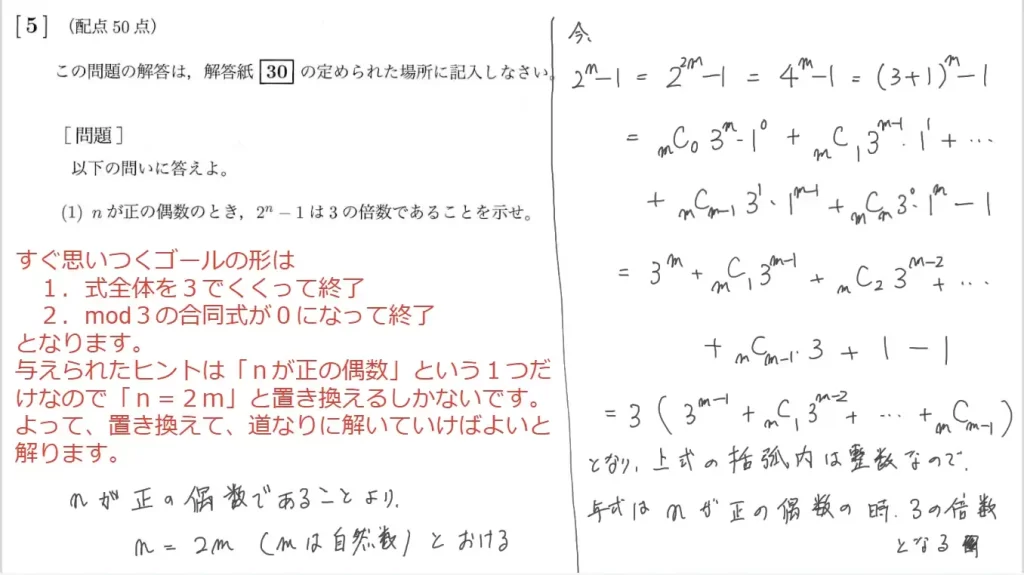 [5] (配点 50 点)
この問題の解答は，解答紙 30 の定められた場所に記入しなさい。
[問題]
以下の問いに答えよ。
(1) n が正の偶数のとき，2ⁿ − 1 は 3 の倍数であることを示せ。
すぐ思いつくゴールの形は
１．式全体を３でくくって終了
２．mod３の合同式が０になって終了
となります。
与えられたヒントは「ｎが正の偶数」という１つだ
けなので「ｎ＝２ｍ」と置き換えるしかないです。
よって、置き換えて、道なりに解いていけばよいと
解ります。
nが正の偶数であることより、
n = 2m (mは自然数) とおける
今、
2ⁿ − 1 = 2²ᵐ − 1 = 4ᵐ − 1 = (3+1)ᵐ − 1
= ₘC₀ 3ᵐ・1⁰ + ₘC₁ 3ᵐ⁻¹・1¹ + …
+ ₘCₘ₋₁ 3¹・1ᵐ⁻¹ + ₘCₘ 3⁰・1ᵐ − 1
= 3ᵐ + ₘC₁ 3ᵐ⁻¹ + ₘC₂ 3ᵐ⁻² + …
+ ₘCₘ₋₁・3 + 1 − 1
= 3 ( 3ᵐ⁻¹ + ₘC₁ 3ᵐ⁻² + … + ₘCₘ₋₁ )
となり、上式の括弧内は整数なので、
与式は n が正の偶数の時、3の倍数
となる